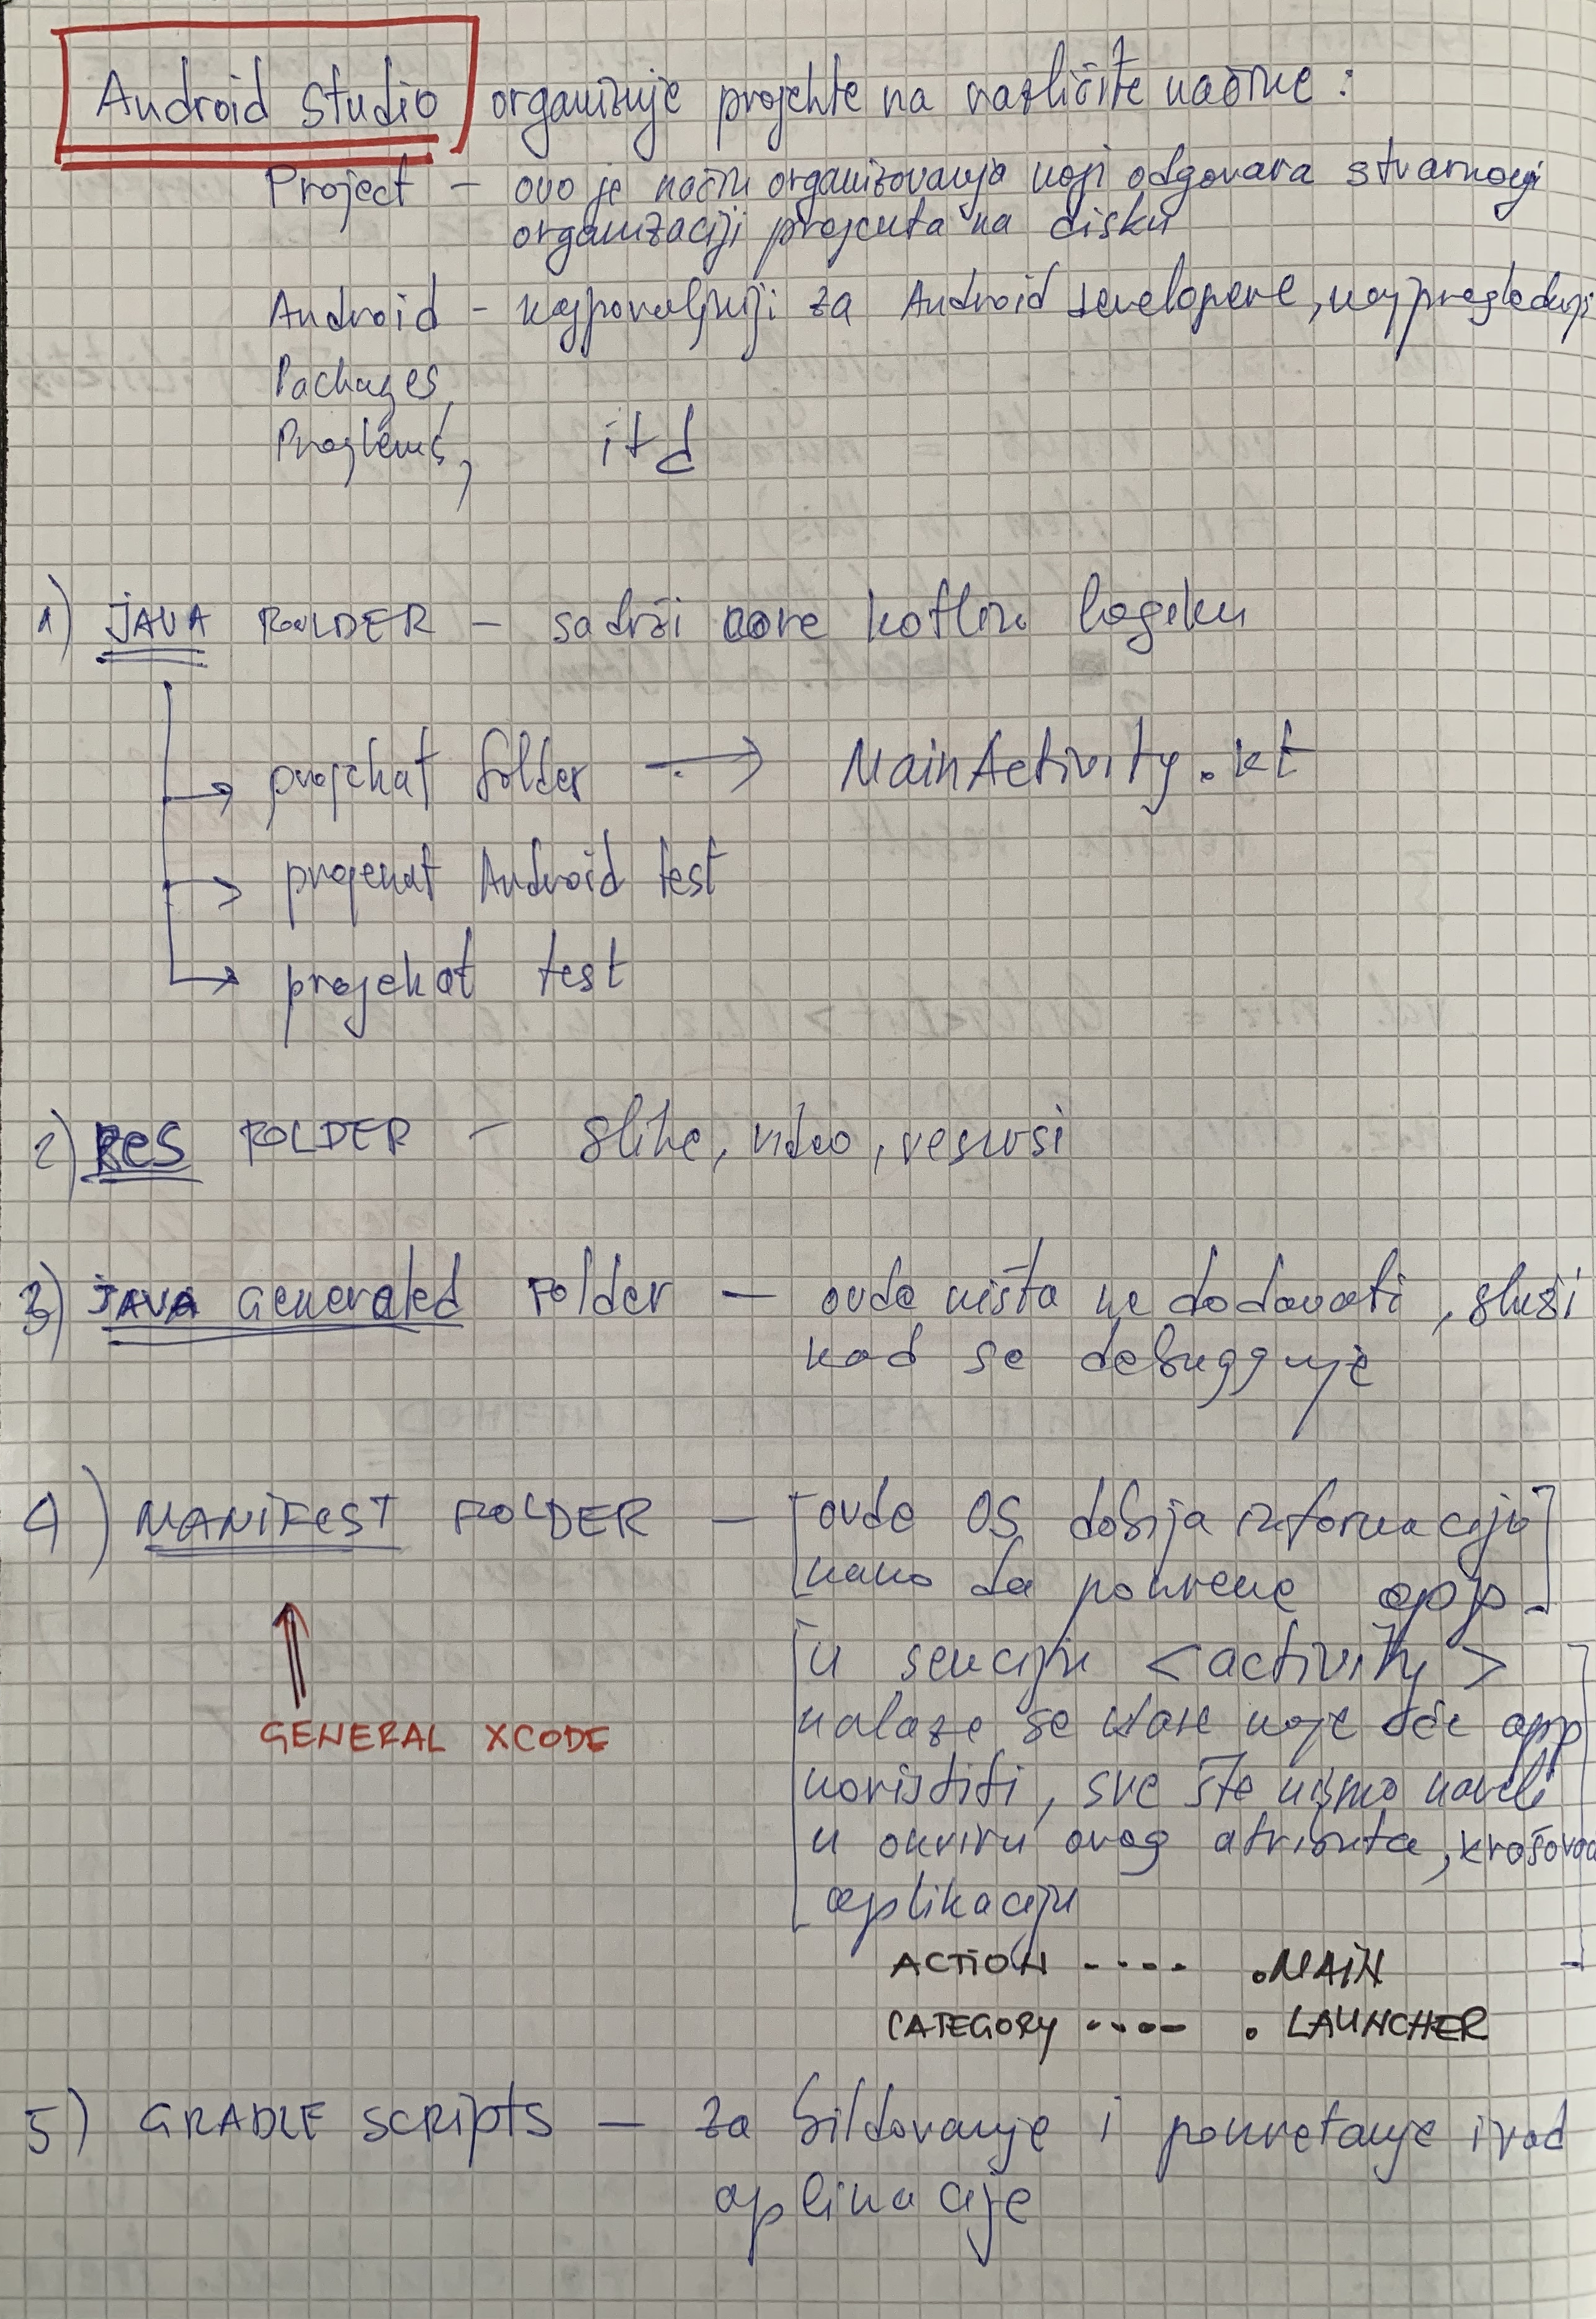 Android Studio organizuje projekte na različite načine:
Project - ovo je način organizovanja koji odgovara stvarnoj
organizaciji projekta na disku
Android - najpovoljniji za Android developere, najpregledniji
Packages,
Problems, itd
1) JAVA FOLDER - sadrži core kotlin logiku
→ projekat folder → MainActivity.kt
→ projekat Android test
→ projekat test
2) RES FOLDER - slike, video, resursi
3) JAVA Generated Folder - ovde ništa ne dodavati, služi
kad se debugguje
4) MANIFEST FOLDER - [ovde OS dobija informaciju
kako da pokrene app.]
GENERAL XCODE
[u sekciju <activity>
nalaze se klase koje će app
koristiti, sve što nismo naveli
u okviru ovog atributa, krašovaće
aplikaciju]
ACTION ---- .MAIN
CATEGORY ---- .LAUNCHER
5) GRADLE SCRIPTS - za bildovanje i pokretanje i rad
aplikacije